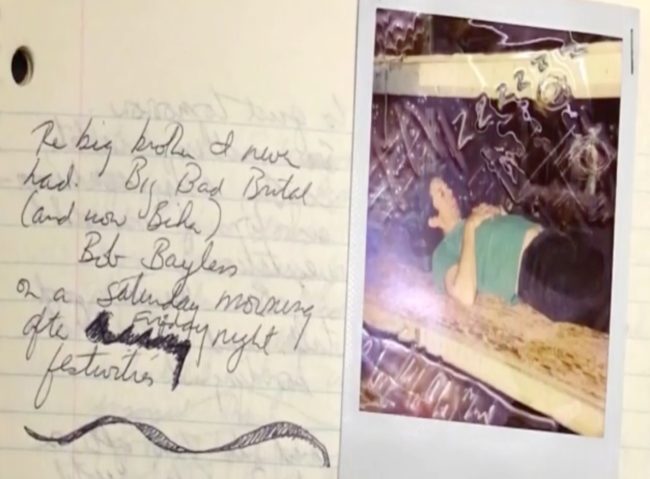 The big brother I never
had. Big Bad Brutal
(and now Biker)
Bob Bayless
on a saturday morning
after Friday night
festivities
ZZZZZ